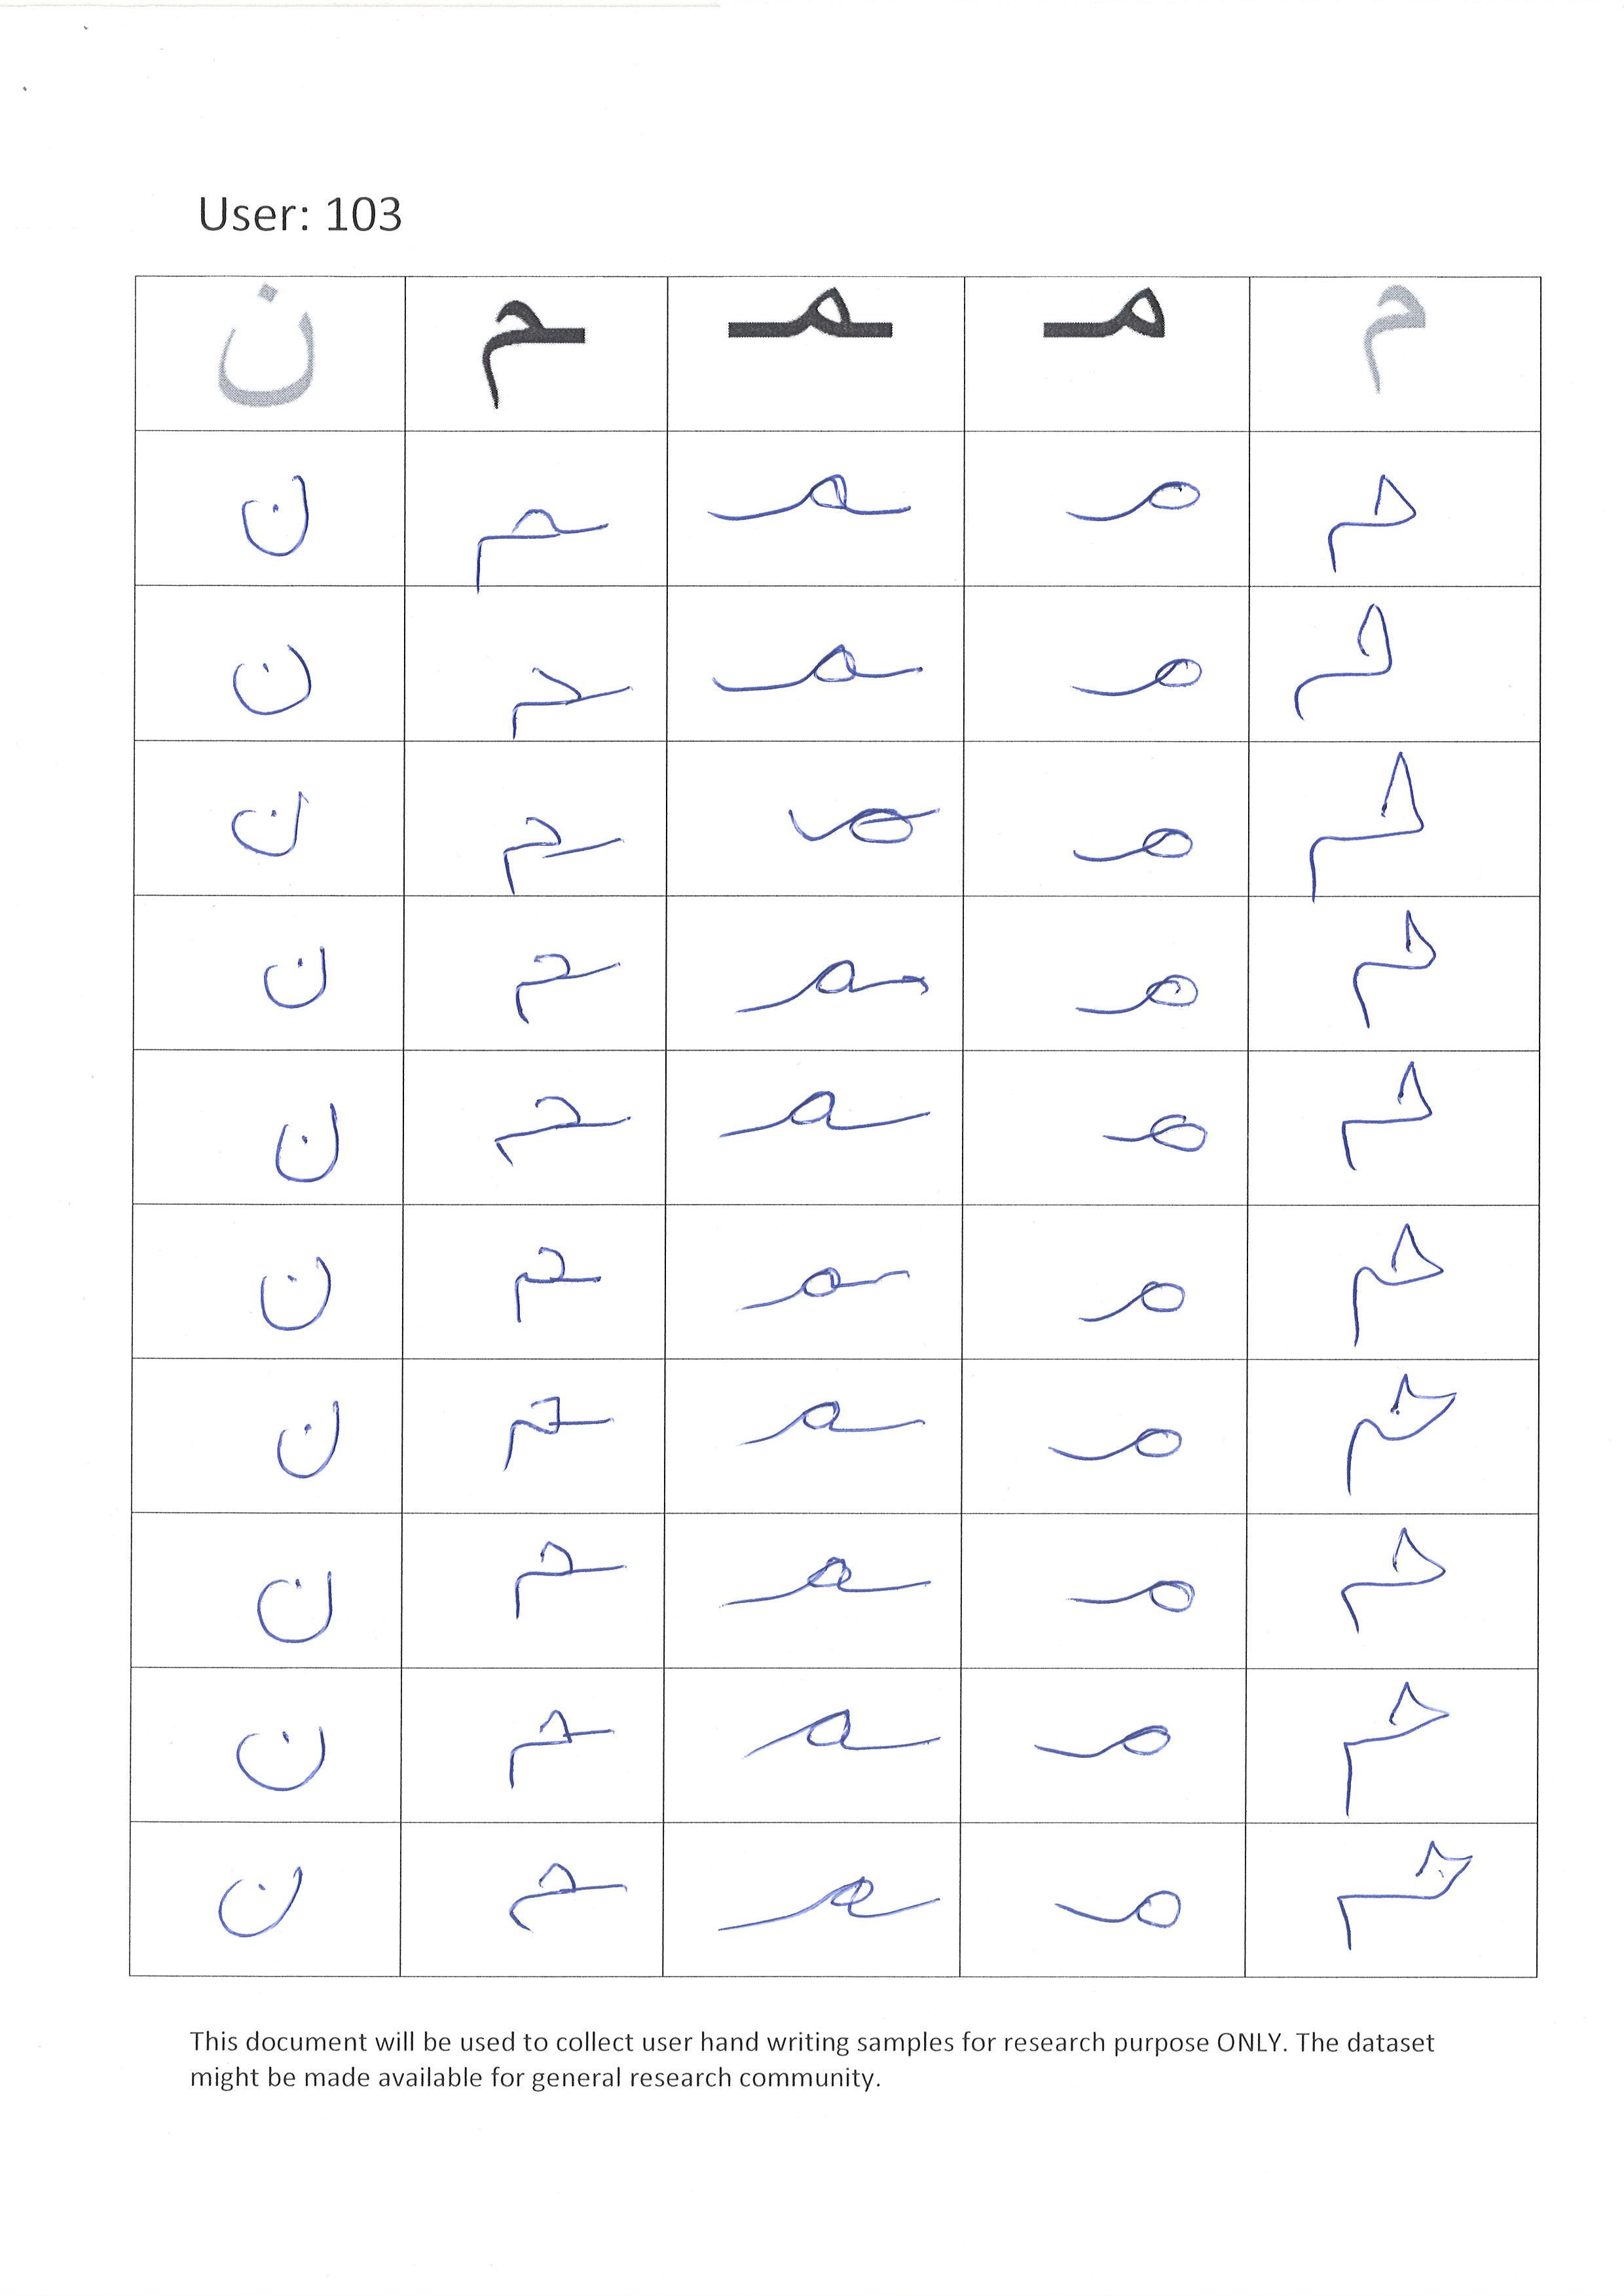 User: 103
م مـ ـمـ ـم ن
م مـ ـمـ ـم ن
م مـ ـمـ ـم ن
م مـ ـمـ ـم ن
م مـ ـمـ ـم ن
م مـ ـمـ ـم ن
م مـ ـمـ ـم ن
م مـ ـمـ ـم ن
م مـ ـمـ ـم ن
م مـ ـمـ ـم ن
م مـ ـمـ ـم ن
This document will be used to collect user hand writing samples for research purpose ONLY. The dataset
might be made available for general research community.